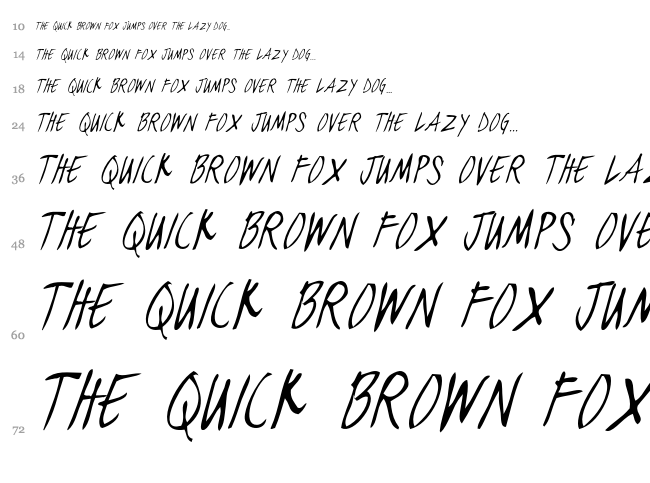 10 THE QUICK BROWN FOX JUMPS OVER THE LAZY DOG...
14 THE QUICK BROWN FOX JUMPS OVER THE LAZY DOG...
18 THE QUICK BROWN FOX JUMPS OVER THE LAZY DOG...
24 THE QUICK BROWN FOX JUMPS OVER THE LAZY DOG...
36 THE QUICK BROWN FOX JUMPS OVER THE LAZ
48 THE QUICK BROWN FOX JUMPS OVE
60 THE QUICK BROWN FOX JUM
72 THE QUICK BROWN FOX